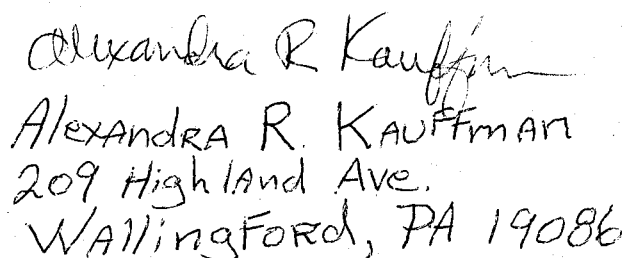 Alexandra R Kauffman
Alexandra R. Kauffman
209 Highland Ave.
Wallingford, PA 19086